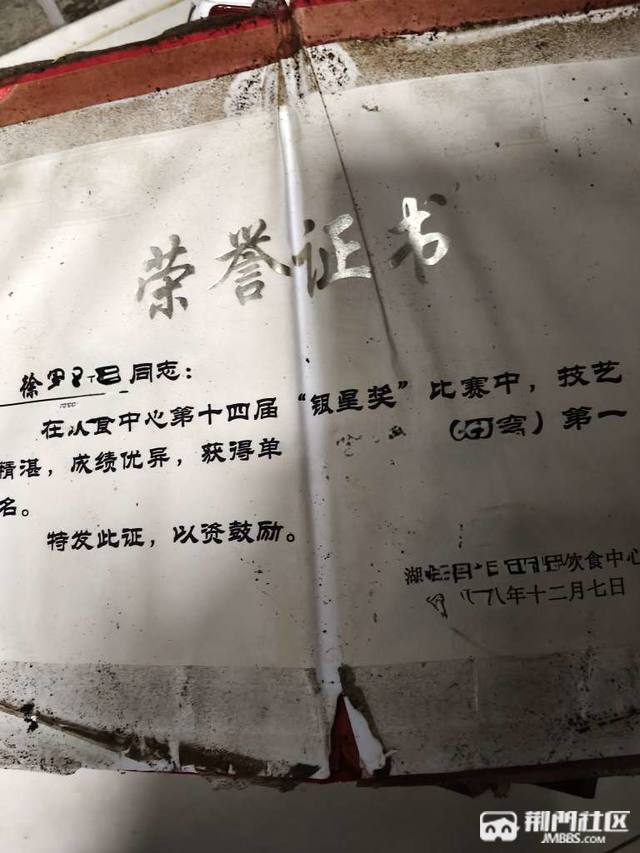 荣誉证书
徐 同志：
在饮食中心第十四届“银星奖”比赛中，技艺
精湛，成绩优异，获得单 第一
名。
特发此证，以资鼓励。
湖 饮食中心
八年十二月七日
荆门社区
JMBBS.COM